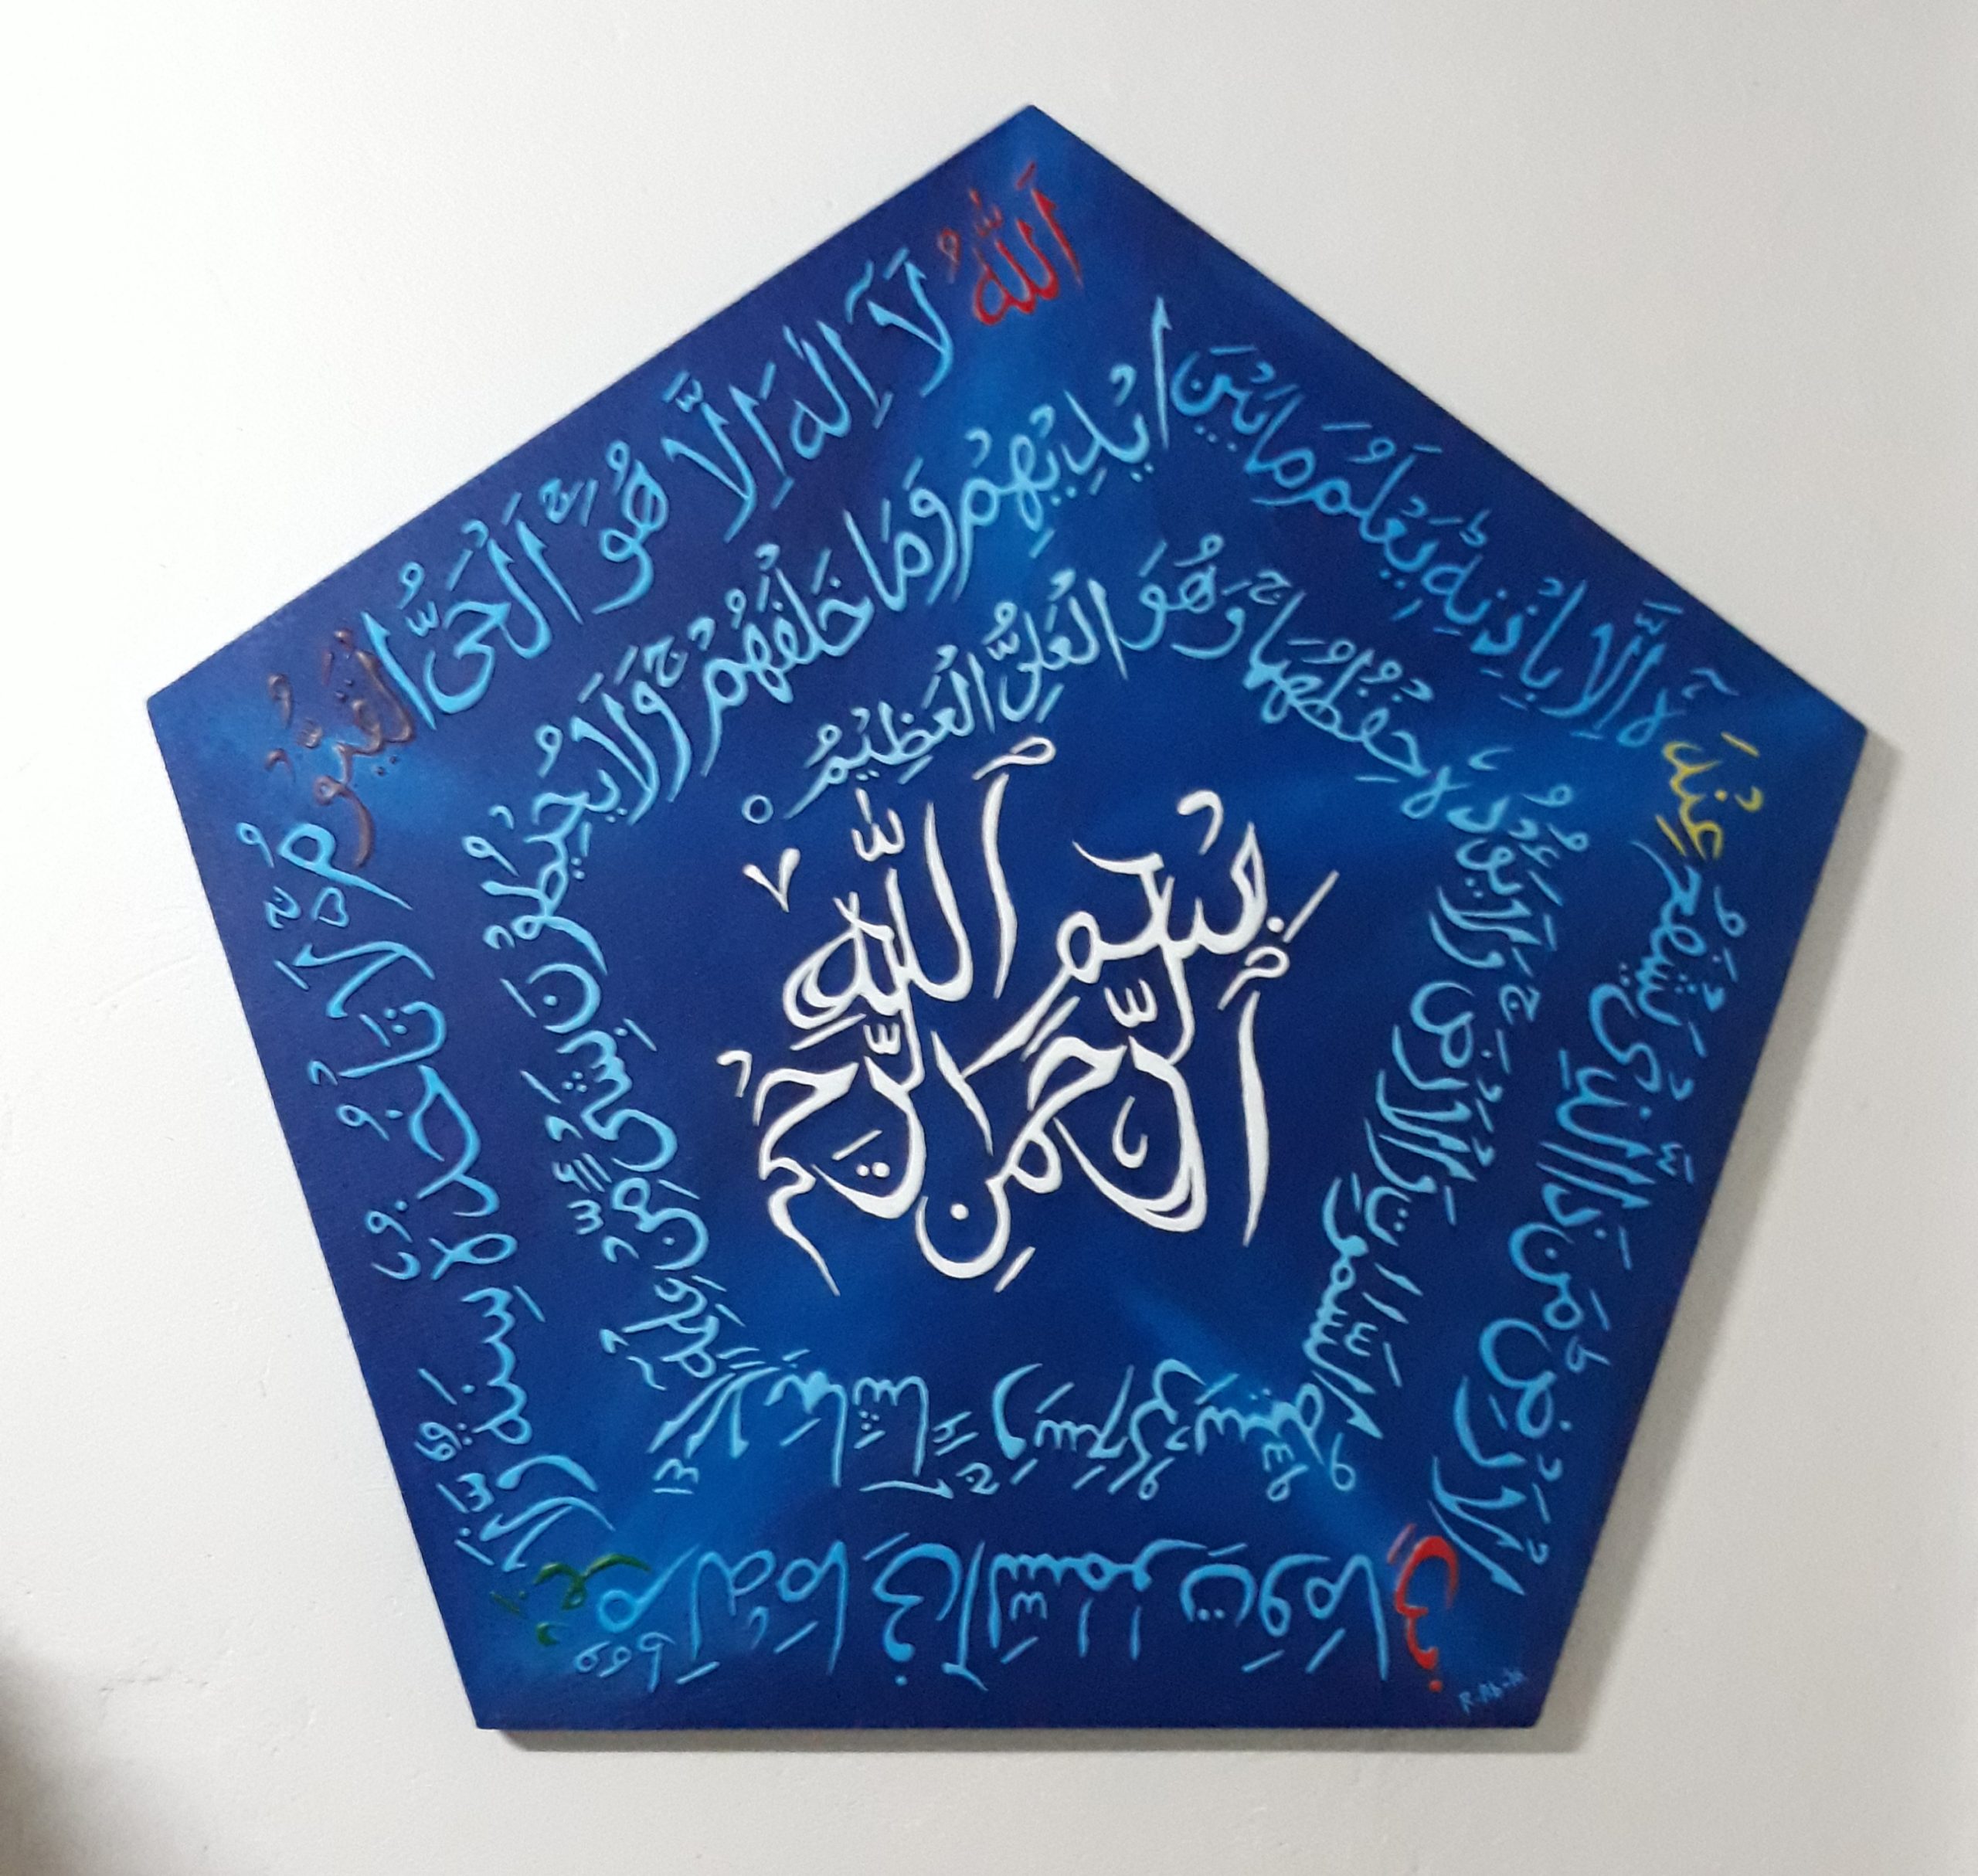 اَللّٰهُ لَآ اِلٰهَ اِلَّا هُوَ ۚ اَلْحَىُّ الْقَيُّوْ
مُ ۚ لَا تَأْخُذُهٗ سِنَةٌ وَّلَا نَوْ
مٌ ؕ لَهٗ مَا فِى السَّمٰوٰتِ وَمَا فِى
الْاَرْضِ ؕ مَنْ ذَا الَّذِىْ يَشْفَعُ عِنْدَ
هٗٓ اِلَّا بِاِذْنِهٖ ؕ يَعْلَمُ مَا بَيْنَ
اَيْدِيْهِمْ وَمَا خَلْفَهُمْ ۚ وَلَا يُحِيْطُوْنَ
بِشَىْءٍ مِّنْ عِلْمِهٖٓ
اِلَّا بِمَا شَآءَ ۚ وَسِعَ كُرْسِيُّهُ
السَّمٰوٰتِ وَالْاَرْضَ ۚ وَلَا يَئُوْدُهٗ
حِفْظُهُمَا ۚ وَهُوَ
الْعَلِىُّ الْعَظِيْمُ ○
بِسْمِ ٱللّٰهِ
ٱلرَّحْمٰنِ الرَّحِيْمِ